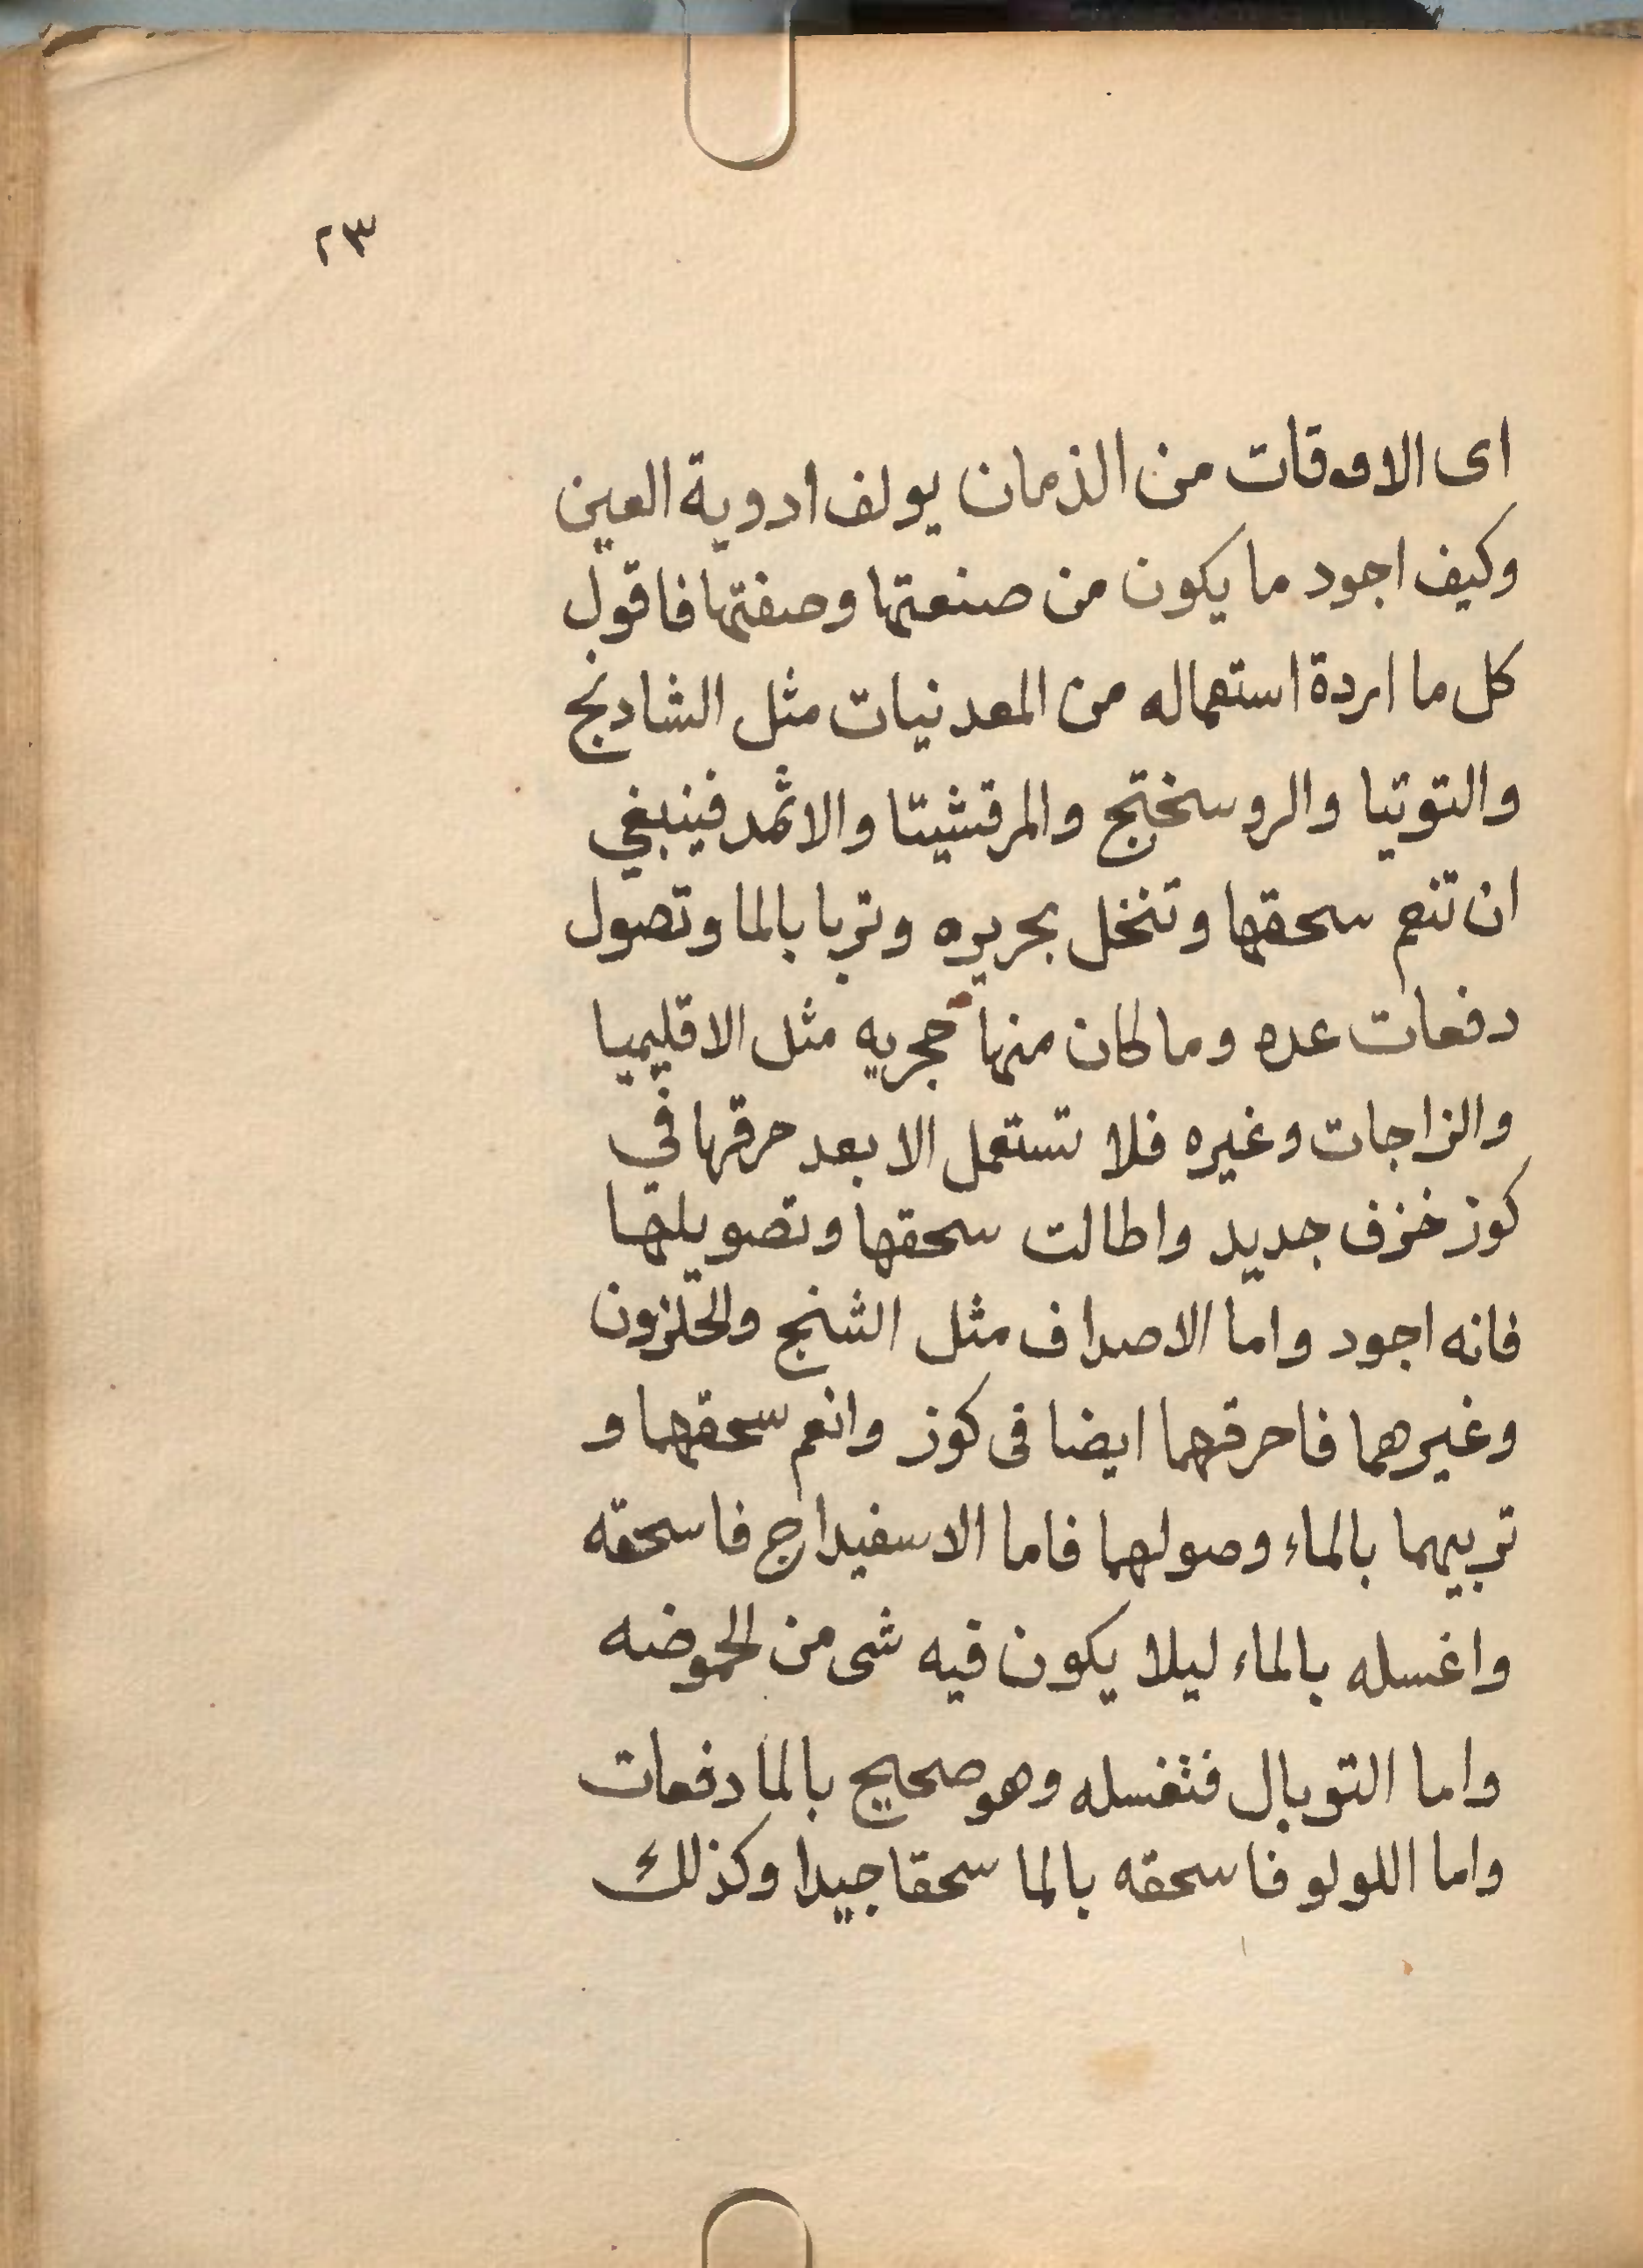 ٢٣
اى الاوقات من الذمان يولف ادوية العين
وكيف اجود ما يكون من صنعتها وصفتها فاقول
كل ما اردة استعماله من المعدنيات مثل الشادنج
والتوتيا والروسختج والمرقشيتا والاثمد فينبغي
ان تنعم سحقها وتنخل بحريره وتربا بالما وتصول
دفعات عده وما كان منها حجريه مثل الاقليميا
والزاجات وغيره فلا تستعمل الا بعد حرقها في
كوز خزف جديد واطالت سحقها وتصويلها
فانه اجود واما الاصداف مثل الشنج والحلزون
وغيرهما فاحرقهما ايضا فى كوز وانعم سحقهما و
تربيهما بالماء وصولهما فاما الاسفيداج فاسحقه
واغسله بالماء ليلا يكون فيه شى من الحموضه
واما التوبال فتغسله وهو صحيح بالما دفعات
واما اللولو فاسحقه بالما سحقا جيدا وكذلك